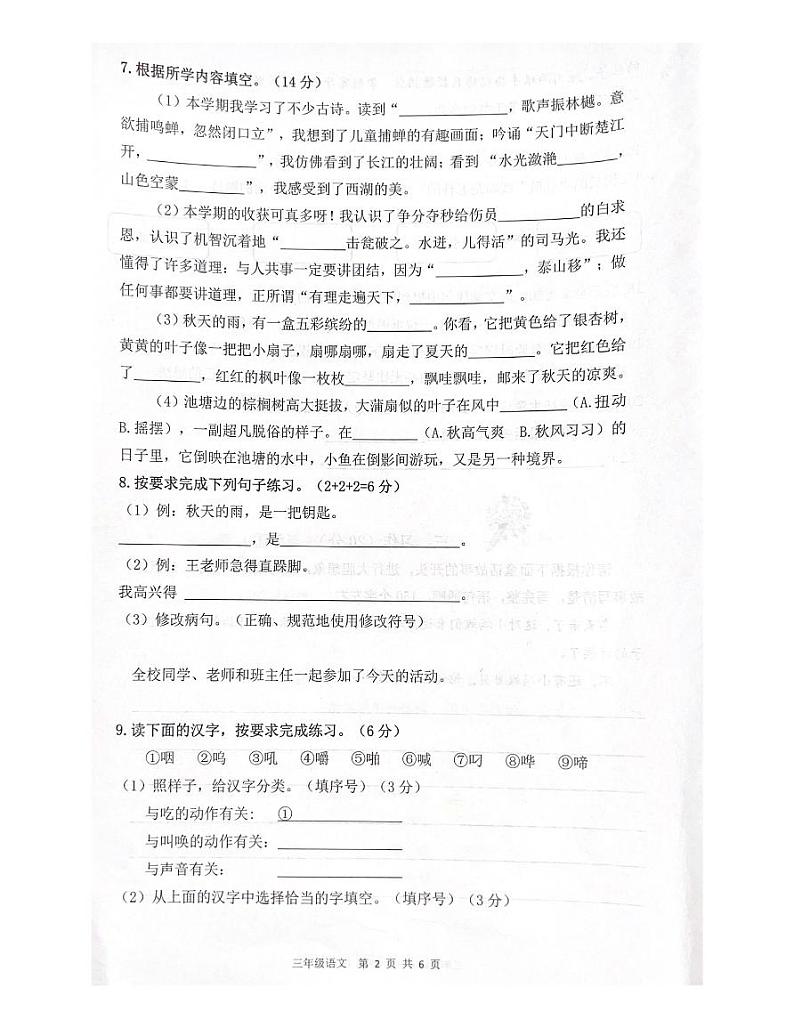 7.根据所学内容填空。（14 分）
（1）本学期我学习了不少古诗。读到“____________，歌声振林樾。意
欲捕鸣蝉，忽然闭口立”，我想到了儿童捕蝉的有趣画面；吟诵“天门中断楚江
开，____________”，我仿佛看到了长江的壮阔；看到 “水光潋滟________，
山色空蒙________ ”，我感受到了西湖的美。
（2）本学期的收获可真多呀！我认识了争分夺秒给伤员__________的白求
恩，认识了机智沉着地“________击瓮破之。水迸，儿得活”的司马光。我还
懂得了许多道理：与人共事一定要讲团结，因为“__________，泰山移”；做
任何事都要讲道理，正所谓“有理走遍天下，__________ ”。
（3）秋天的雨，有一盒五彩缤纷的________。你看，它把黄色给了银杏树，
黄黄的叶子像一把把小扇子，扇哪扇哪，扇走了夏天的________。它把红色给
了________，红红的枫叶像一枚枚________，飘哇飘哇，邮来了秋天的凉爽。
（4）池塘边的棕榈树高大挺拔，大蒲扇似的叶子在风中________（A.扭动
B.摇摆），一副超凡脱俗的样子。在________（A.秋高气爽 B.秋风习习）的
日子里，它倒映在池塘的水中，小鱼在倒影间游玩，又是另一种境界。
8.按要求完成下列句子练习。（2+2+2=6 分）
（1）例：秋天的雨，是一把钥匙。
________________，是______________________。
（2）例：王老师急得直跺脚。
我高兴得 __________________________________。
（3）修改病句。（正确、规范地使用修改符号）
全校同学、老师和班主任一起参加了今天的活动。
9.读下面的汉字，按要求完成练习。（6 分）
①咽 ②呜 ③吼 ④嚼 ⑤啪 ⑥喊 ⑦叼 ⑧哗 ⑨啼
（1）照样子，给汉字分类。（填序号）（3 分）
与吃的动作有关： ①______________
与叫唤的动作有关：________________
与声音有关： ________________
（2）从上面的汉字中选择恰当的字填空。（填序号）（3 分）
三年级语文 第 2 页 共 6 页